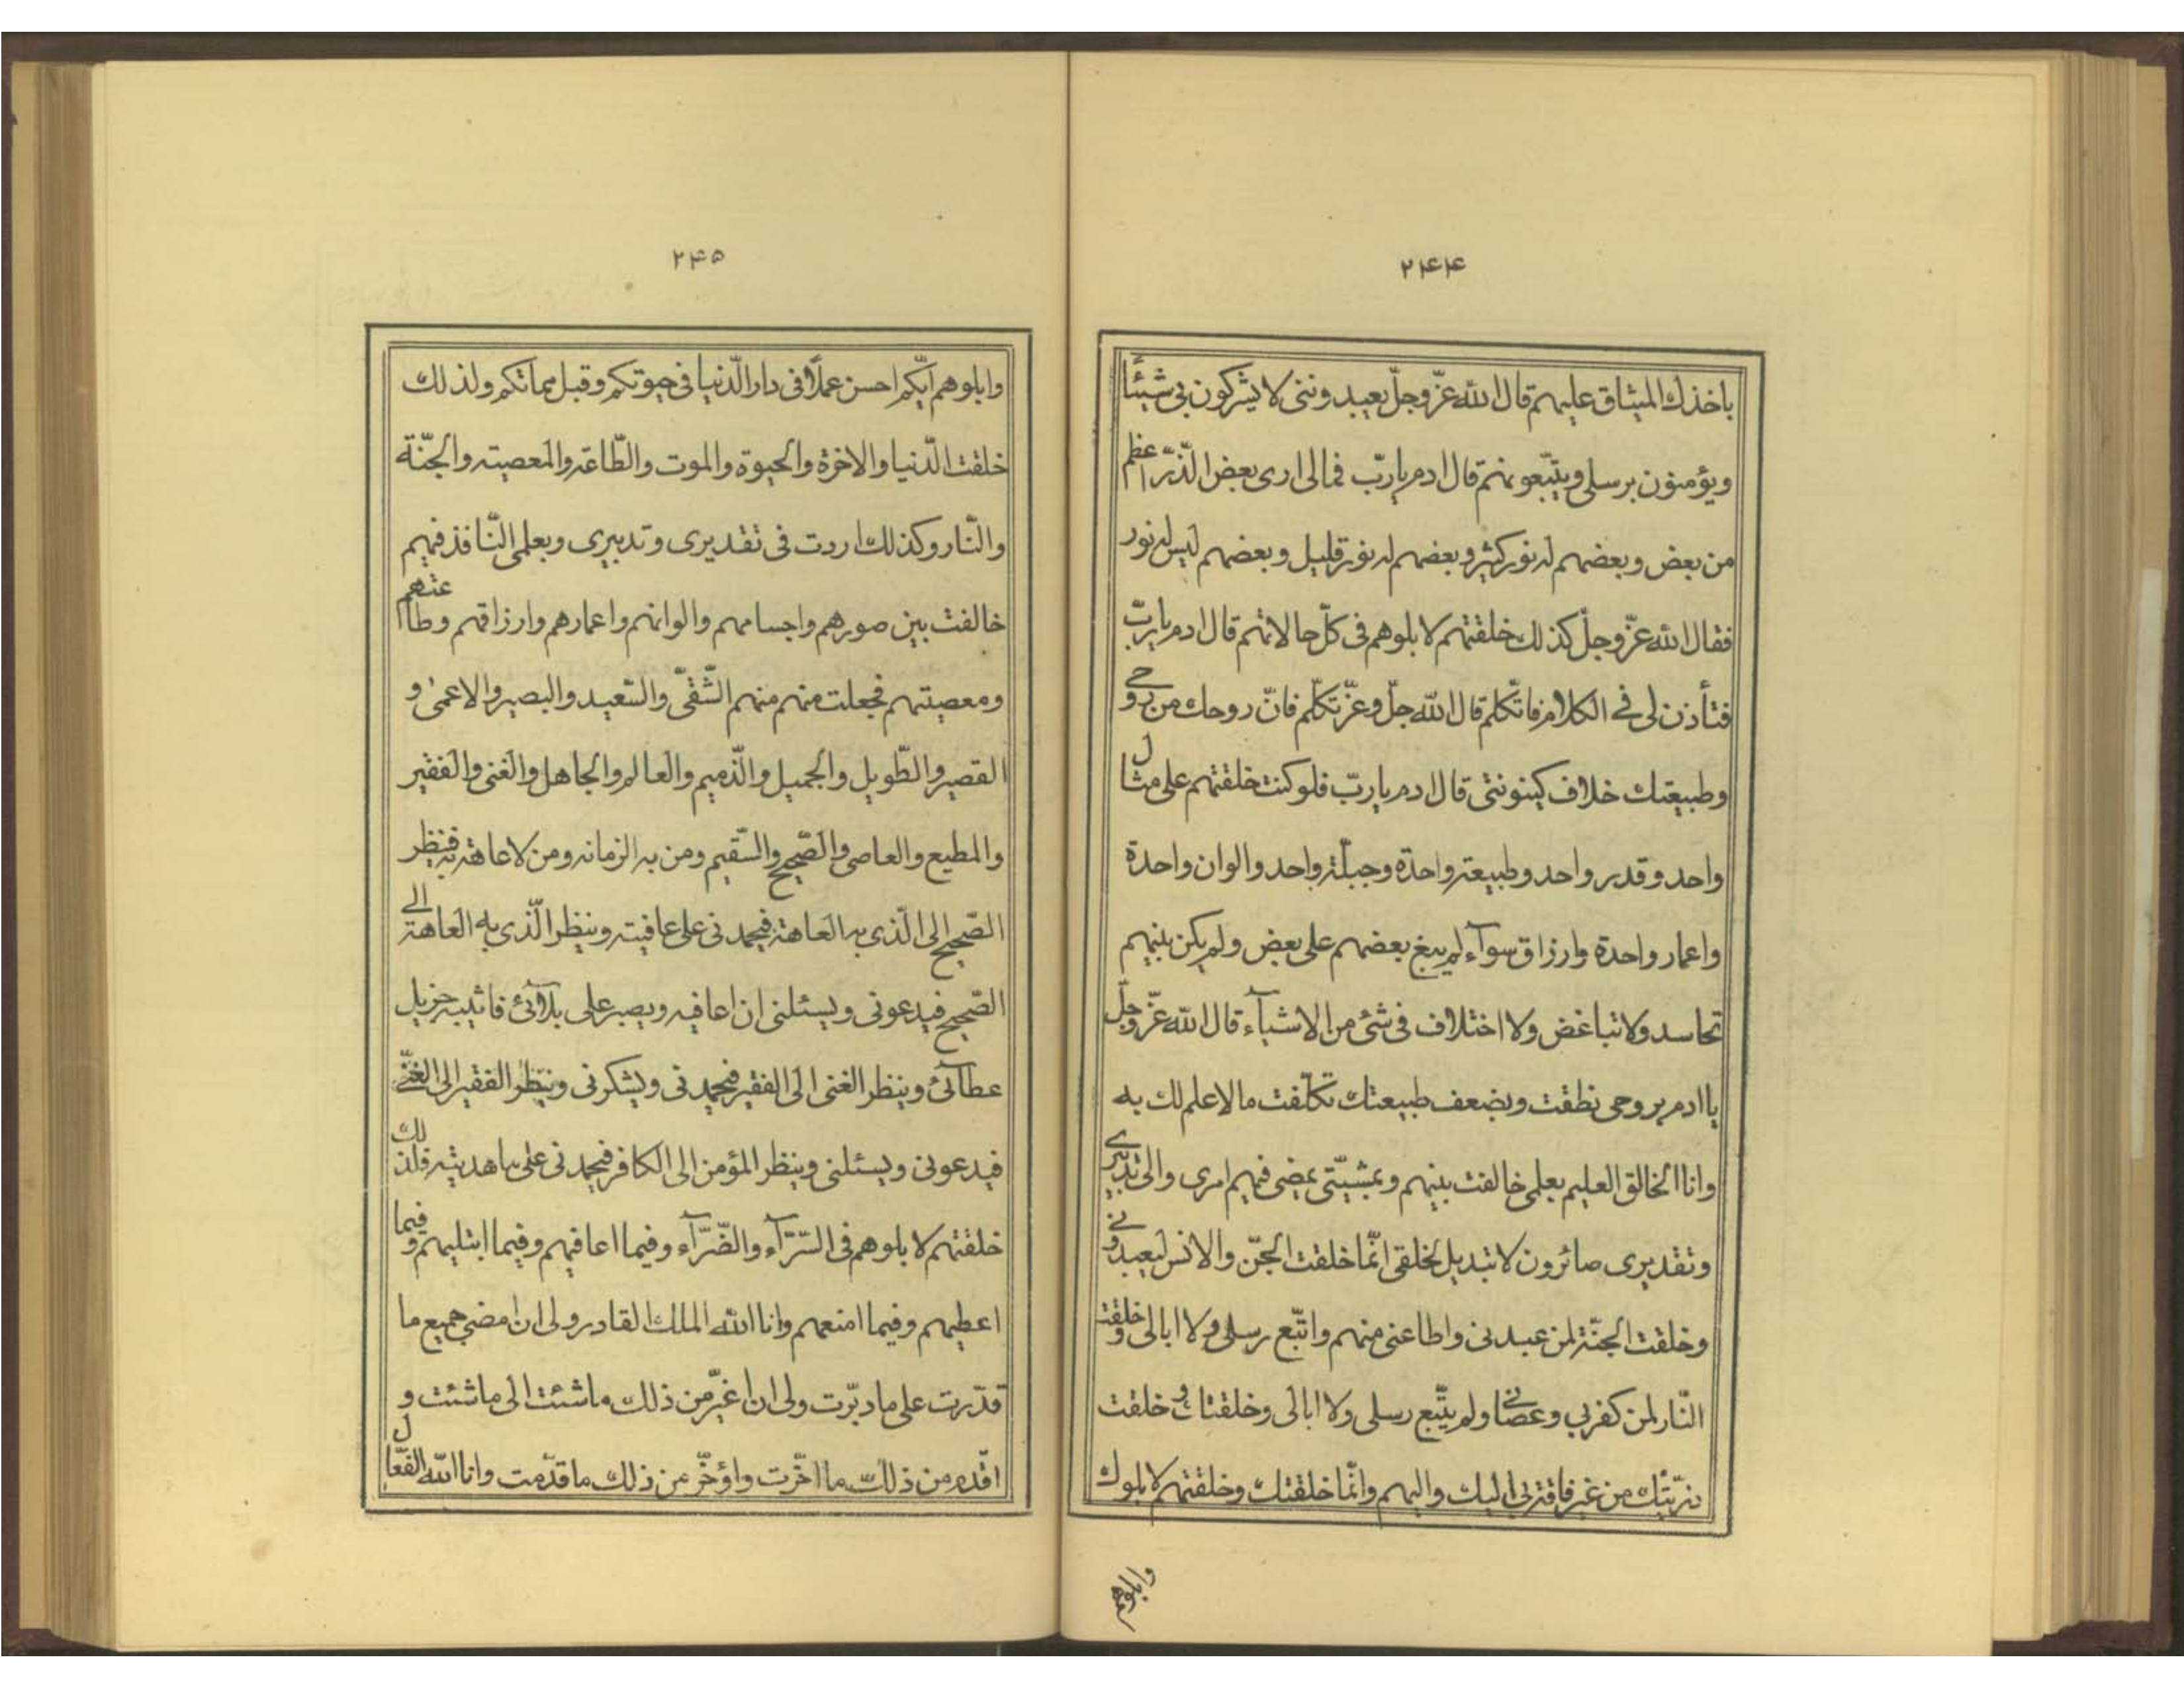 ۲۴۴
باخذك الميثاق عليهم قال الله عزّ وجلّ يعبدونني لا يشركون بي شيئًا
ويؤمنون برسلي ويتّبعونهم قال ادم يا ربّ فمالى ارى بعض الذّرّ اعظم
من بعض وبعضهم له نور كثير وبعضهم له نور قليل وبعضهم ليس له نور
فقال الله عزّ وجلّ كذلك خلقتهم لابلوهم فى كلّ حالاتهم قال ادم يا ربّ
فتأذن لى فى الكلام فاتكلم قال الله جلّ وعزّ تكلّم فانّ روحك من روحى
وطبيعتك خلاف كينونتى قال ادم يا ربّ فلو كنت خلقتهم على مثال
واحد وقدر واحد وطبيعة واحدة وجبلّة واحد والوان واحدة
واعمار واحدة وارزاق سوآء لم يبغ بعضهم على بعض ولم يكن بينهم
تحاسد ولا تباغض ولا اختلاف فى شئ من الاشيآء قال الله عزّ وجلّ
يا ادم بروحى نطقت وبضعف طبيعتك تكلّفت مالا علم لك به
وانا الخالق العليم بعلمى خالفت بينهم وبمشيّتى يمضى فيهم امرى والى تدبيرى
وتقديرى صائرون لا تبديل لخلقى انّما خلقت الجنّ والانس ليعبدونى
وخلقت الجنّة لمن عبدنى واطاعنى منهم واتّبع رسلى ولا ابالى وخلقت
النّار لمن كفر بي وعصانى ولم يتّبع رسلى ولا ابالى وخلقتك وخلقت
ذرّيّتك من غير فاقة بى اليك واليهم وانّما خلقتك وخلقتهم لابلوك
وابلوهم
۲۴۵
وابلوهم ايّكم احسن عملًا فى دار الدّنيا فى حيوتكم وقبل مماتكم ولذلك
خلقت الدّنيا والاخرة والحيوة والموت والطّاعة والمعصية والجنّة
والنّار وكذلك اردت فى تقديرى وتدبيرى وبعلمى النّافذ فيهم
خالفت بين صورهم واجسامهم والوانهم واعمارهم وارزاقهم وطاعتهم
ومعصيتهم فجعلت منهم منهم الشّقىّ والسّعيد والبصير والاعمى و
القصير والطّويل والجميل والذّميم والعالم والجاهل والغنى والفقير
والمطيع والعاصى والصّحيح والسّقيم ومن به الزمانه ومن لا عاهة به فينظر
الصّحيح الى الّذى به العاهة فيحمدنى على عافيته وينظر الّذى به العاهة الى
الصّحيح فيدعونى ويسئلنى ان اعافيه ويصبر على بلآئى فاثيبه جزيل
عطآئى وينظر الغنى الى الفقير فيحمدنى ويشكرنى وينظر الفقير الى الغنّى
فيدعونى ويسئلنى وينظر المؤمن الى الكافر فيحمدنى على ما هديته فلذلك
خلقتهم لابلوهم فى السّرّآء والضّرّآء وفيما اعافيهم وفيما ابتليهم وفيما
اعطيهم وفيما امنعهم وانا الله الملك القادر ولى ان امضى جميع ما
قدّرت على ما دبّرت ولى ان اغيّر من ذلك ما شئت الى ما شئت و
اقدّم من ذلك ما اخّرت واؤخّر من ذلك ما قدّمت وانا الله الفعّال